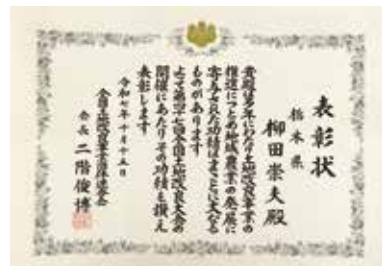 表彰状
栃木県
柳田崇夫殿
貴殿は多年にわたり土地改良事業の
推進につとめ地域農業の発展に
寄与された功績はまことに大なる
ものがあります
よって第四十七回全国土地改良大会の
開催にあたりその功績を讃え
表彰します
令和七年十月十五日
全国土地改良事業団体連合会
会長 二階俊博